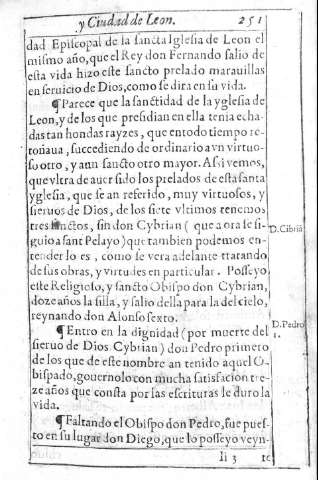 y Ciudad de Leon. 251
dad Episcopal de la sancta Iglesia de Leon el
mismo año, que el Rey don Fernando salio de
esta vida hizo este sancto prelado marauillas
en seruicio de Dios, como se dira en su vida.
¶Parece que la sanctidad de la yglesia de
Leon, y de los que presidian en ella tenia echa-
das tan hondas rayzes, que en todo tiempo re-
toñaua, succediendo de ordinario a vn virtuo-
so otro, y a vn sancto otro mayor. Assi vemos,
que vltra de auer sido los prelados de esta santa
yglesia, que se an referido, muy virtuosos, y
sieruos de Dios, de los siete vltimos tenemos
tres sanctos, sin don Cybrian ( que a ora le si-
guio a sant Pelayo) que tambien podemos en-
tender lo es, como se vera adelante tratando
de sus obras, y virtudes en particular. Posseyo
este Religioso, y sancto Obispo don Cybrian,
doze años la silla, y salio della para la del cielo,
reynando don Alonso sexto.
¶Entro en la dignidad (por muerte del
sieruo de Dios Cybrian) don Pedro primero
de los que de este nombre an tenido aquel O-
bispado, gouernolo con mucha satisfacion tre-
ze años que consta por las escrituras le duro la
vida.
¶Faltando el Obispo don Pedro, fue pues-
to en su lugar don Diego, que lo posseyo veyn-
Ii 3 te
D. Cibriã
D. Pedro
1.